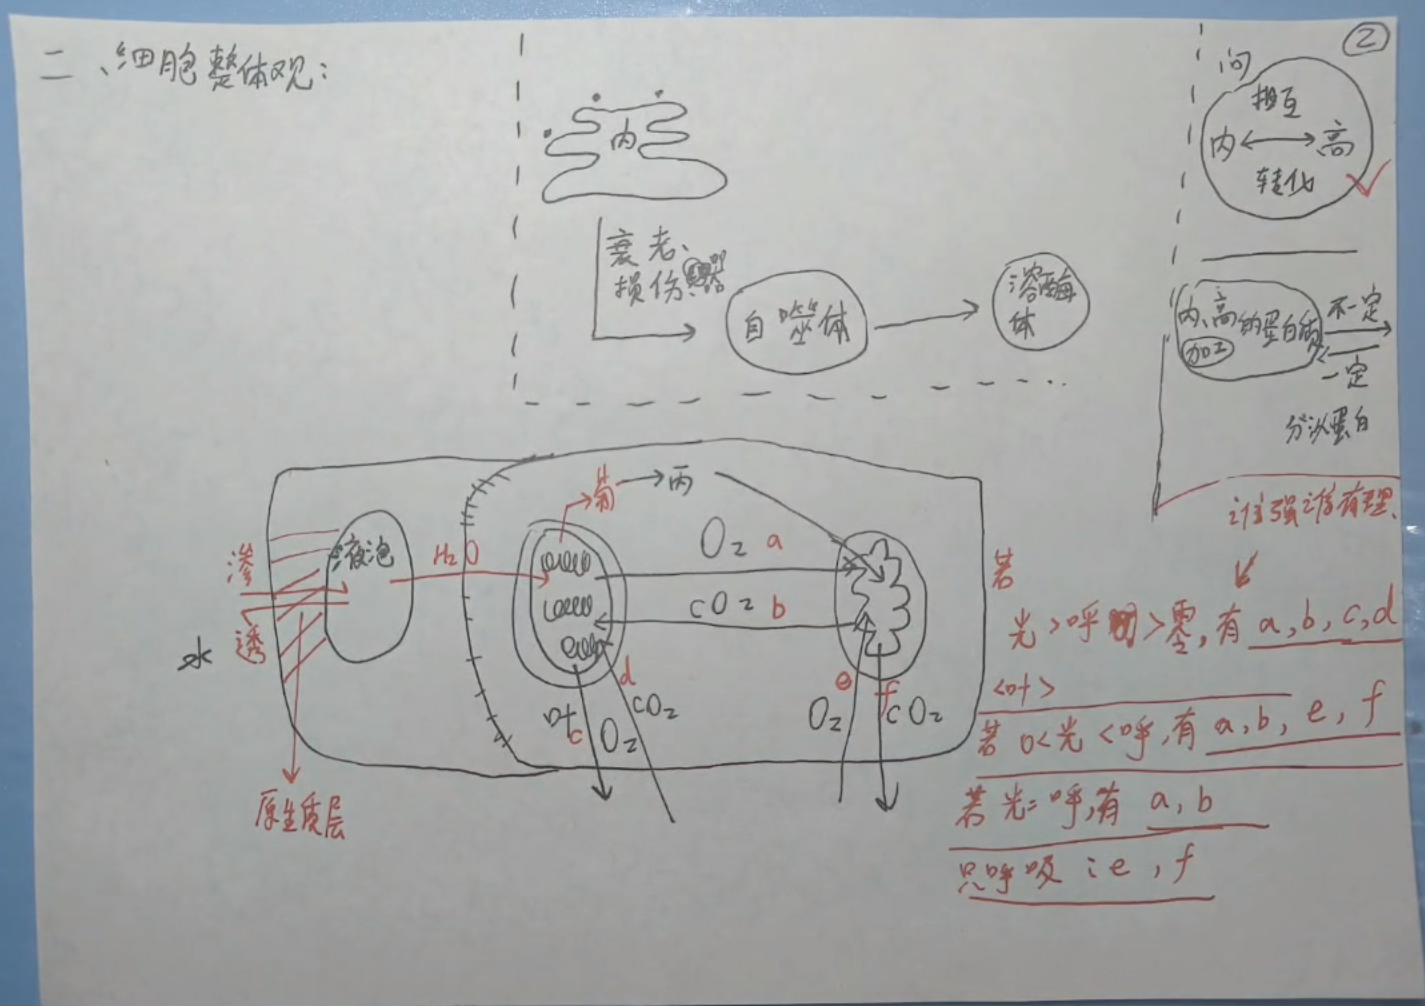 二、细胞整体观:
②
内
衰老、
损伤
自噬体
溶酶
体
问
相互
内 高
转化
内、高的蛋白质
加工
不一定
一定
分泌蛋白
谁强谁有理
葡 丙
液泡
H₂O
O₂ a
CO₂ b
渗
透
水
叶
c
O₂
d
CO₂
e
O₂
f
CO₂
原生质层
若
光>呼>零,有 a,b,c,d
<叶>
若 0<光<呼,有 a,b,e,f
若光=呼,有 a,b
只呼吸:e,f